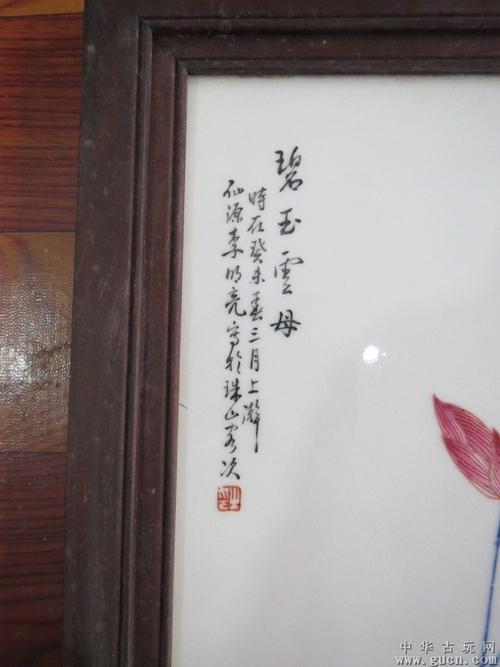 碧玉雲母
時在癸未春三月上澣
仙源李明亮寫於珠山客次
中华古玩网
www.gucn.com